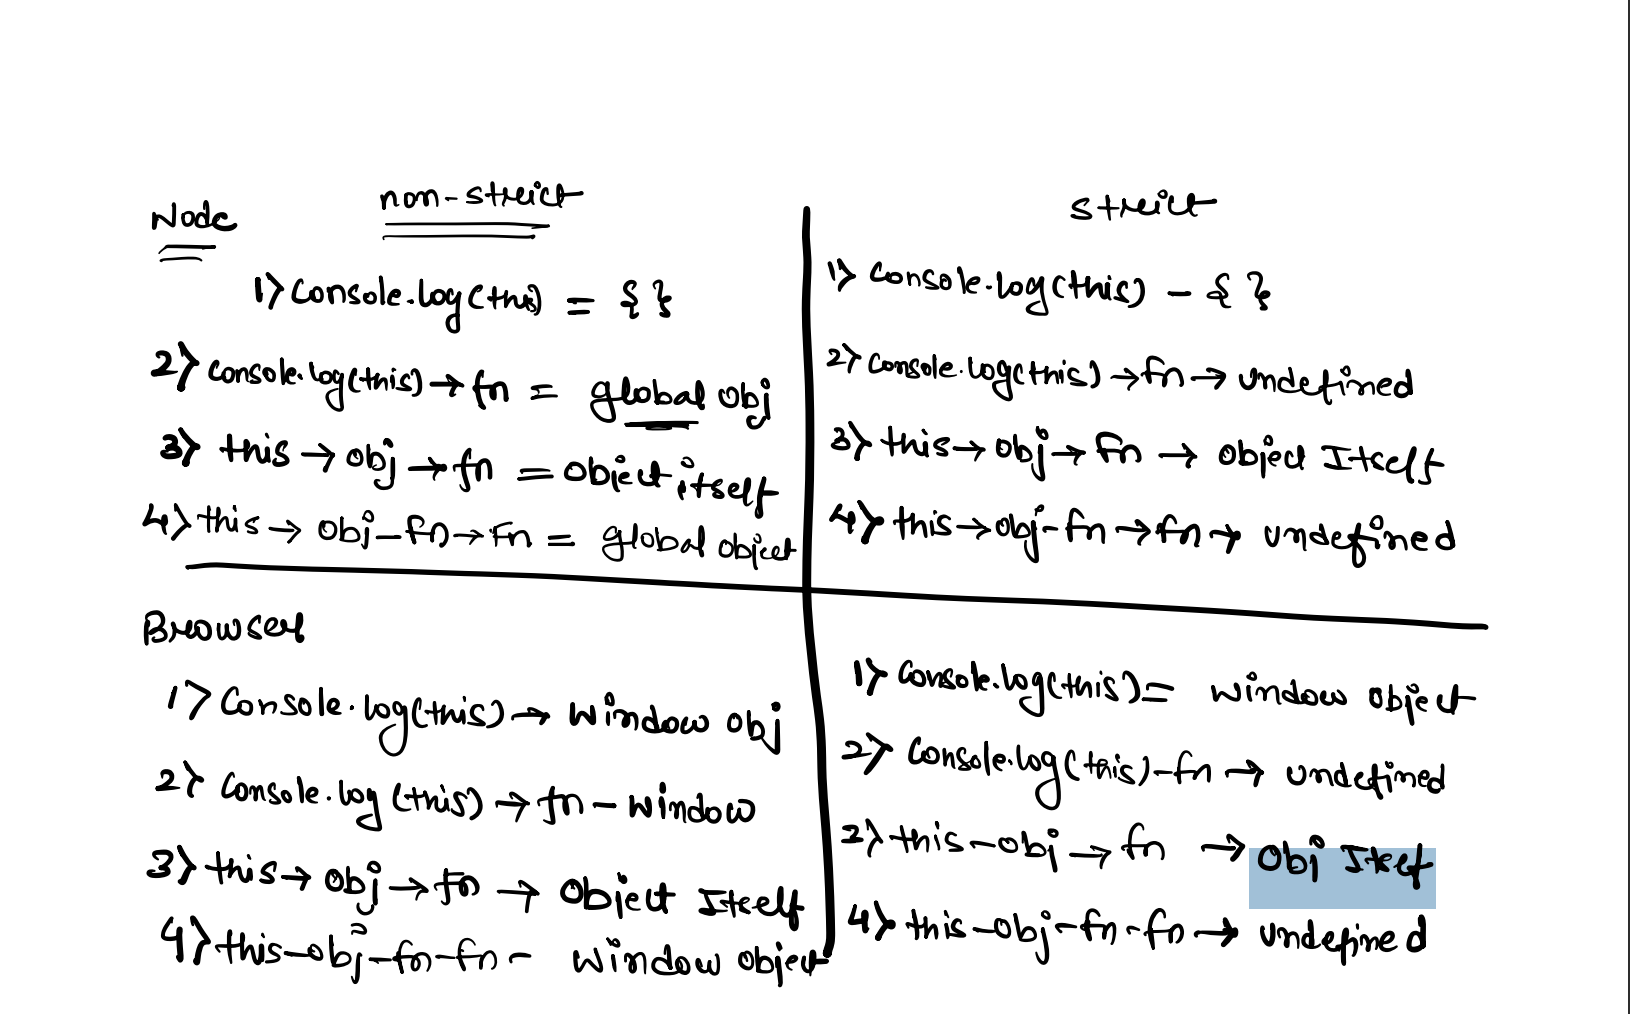 Node
non-strict
1) console.log(this) = { }
2) console.log(this) → fn = global obj
3) this → obj → fn = object itself
4) this → obj - fn → fn = global object
strict
1) console.log(this) - { }
2) console.log(this) → fn → undefined
3) this → obj → fn → object Itself
4) this → obj - fn → fn → undefined
Browser
1) Console.log(this) → window obj
2) Console.log(this) → fn - window
3) this → obj → fn → object Itself
4) this - obj - fn - fn - window object
1) console.log(this) = window object
2) console.log(this) - fn → undefined
2) this - obj → fn → Obj Itself
4) this - obj - fn - fn → undefined